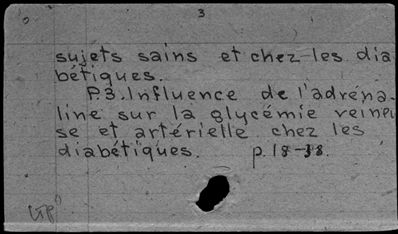 3
sujets sains et chez les dia
bétiques.
P.3. Influence de l'adréna-
line sur la glycémie veineu
se et artérielle chez les
diabétiques. p. 18-38.